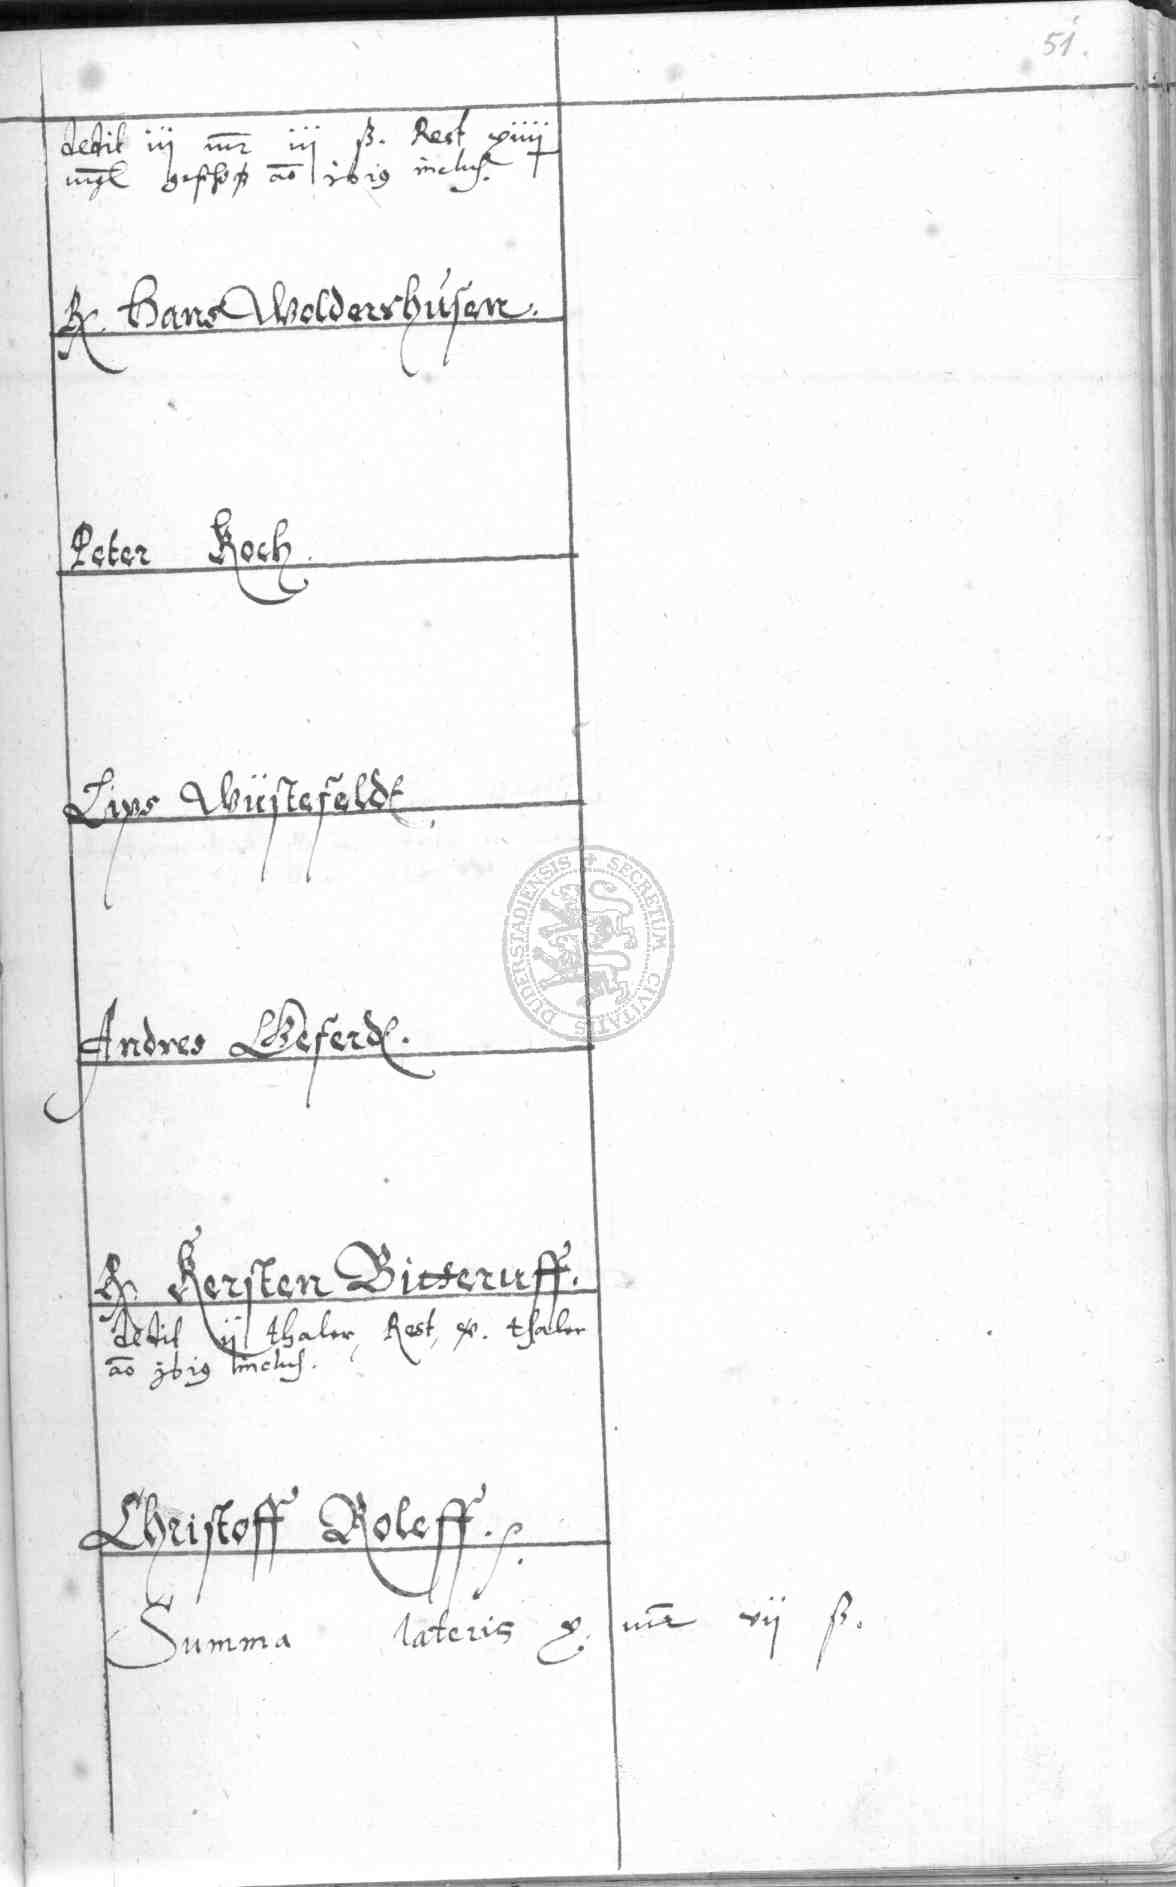 51.
dedit iij mr iij ß. Rest xiiij
mgl geschoß ao 1619 inclus.
R. Hans Woldershusen.
Peter Koch.
Lips Wüstefeldt
Andres Geferdt.
R. Kersten Bitteruff.
dedit ij thaler, Rest, x. thaler
ao 1619 inclus.
Christoff Roleff.
Summa lateris x. mr vij ß.
SECRETUM CIVITATIS DUDERSTADIENSIS